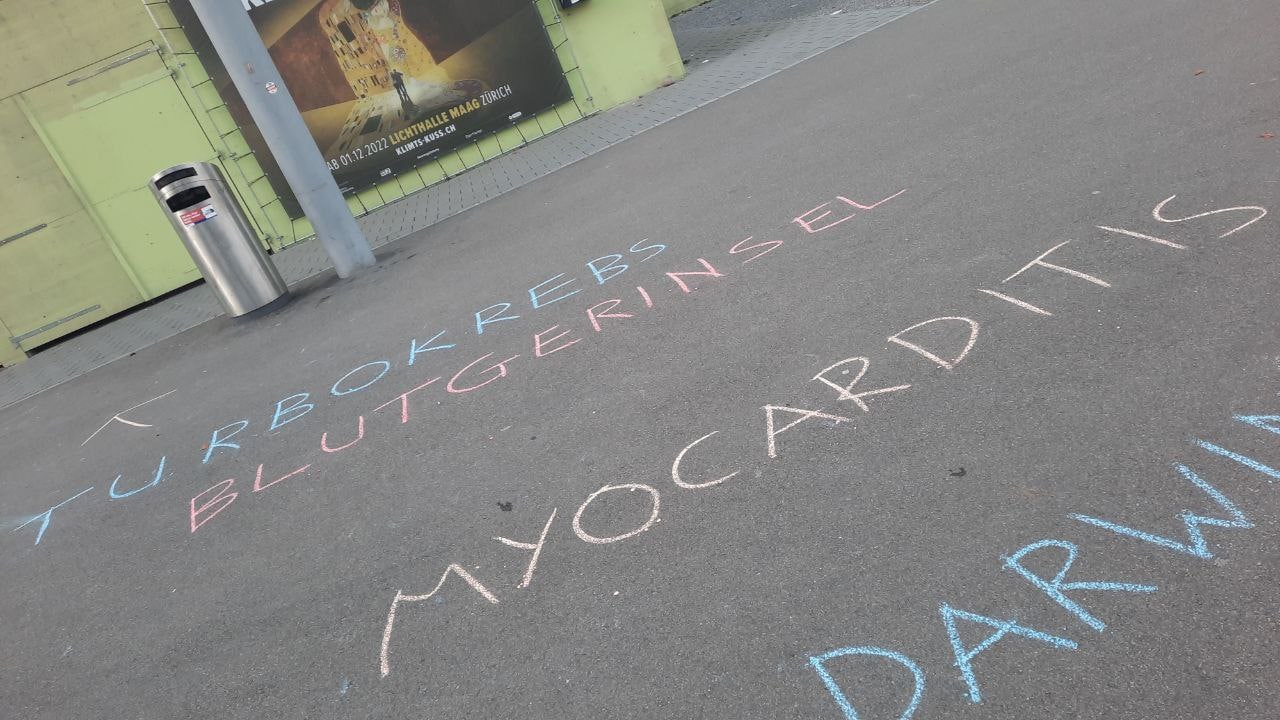 AB 01.12.2022 LICHTHALLE MAAG ZÜRICH
KLIMTS-KUSS.CH
TURBOKREBS
BLUTGERINSEL
MYOCARDITIS
DARWI